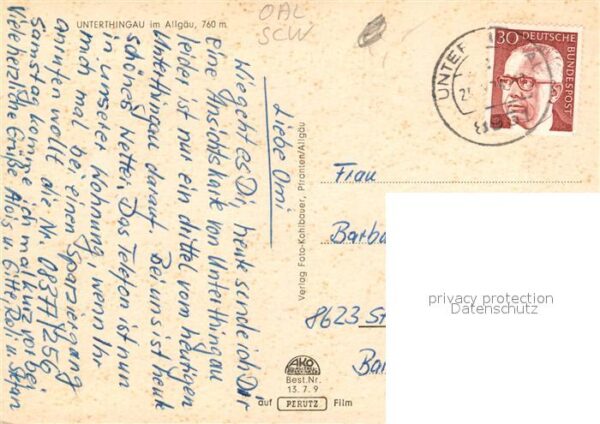 UNTERTHINGAU im Allgäu, 760 m.
OAL
SCW
Liebe Omi
Wie geht es Dir, heute sende ich Dir
eine Ansichtskarte von Unterthingau
leider ist nur ein drittel vom heutigen
Unterthingau darauf. Bei uns ist heute
schönes Wetter. Das Telefon ist nun
in unserer Wohnung, wenn Ihr
mich mal bei einen Spaziergang
anrufen wollt die Nr. 08377/256
Samstag komme ich mal kurz vorbei
Viele herzliche Grüße Alois u. Gitte, Rolf u. Stefan
Verlag Foto-Kohlbauer, Pfronten/Allgäu
AKO
Best.Nr.
13.7.9
auf PERUTZ Film
UNTER
30 DEUTSCHE BUNDESPOST
Frau
Barba
8623 St
Ba
privacy protection
Datenschutz